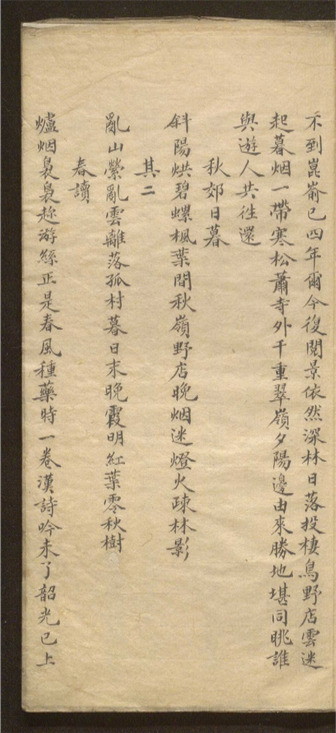 不到崑崙已四年爾今復閱景依然深林日落投棲鳥野店雲迷
起暮烟一帶寒松蕭寺外千重翠嶺夕陽邊由來勝地堪同眺誰
與遊人共往還
秋郊日暮
斜陽烘碧螺楓葉間秋嶺野店晚烟迷燈火疎林影
其二
亂山縈亂雲離落孤村暮日末晚霞明紅葉零秋樹
春讀
爐烟裊裊趂游絲正是春風種藥時一卷漢詩吟未了韶光已上